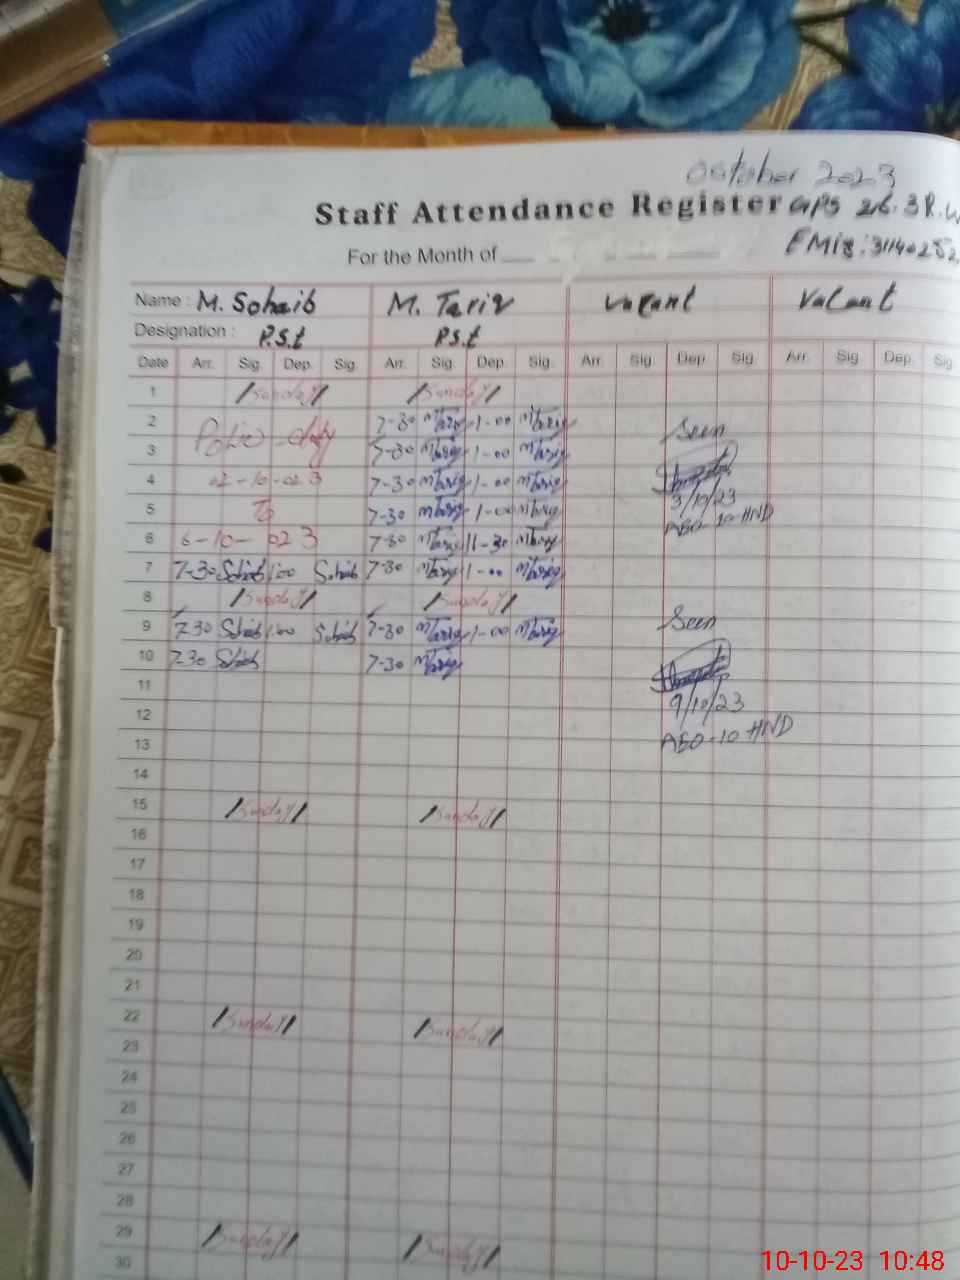 October 2023
Staff Attendance Register GPS 26.3R.
For the Month of
EMIS: 31140252
Name : M. Sohaib M. Tariq vacant vacant
Designation : P.S.t P.S.t
Date Arr. Sig. Dep. Sig. Arr. Sig. Dep. Sig. Arr. Sig. Dep. Sig. Arr. Sig. Dep. Sig.
1 Sunday Sunday
2 7-30 MTariq 1-00 MTariq Seen
3 Polio duty 7-30 MTariq 1-00 MTariq
4 02-10-023 7-30 MTariq 1-00 MTariq 3/10/23
5 To 7-30 MTariq 1-00 MTariq AEO-10-HND
6 6-10-023 7-30 MTariq 11-30 MTariq
7 7-30 Sohaib 1:00 Sohaib 7-30 MTariq 1-00 MTariq
8 Sunday Sunday
9 7-30 Sohaib 1:00 Sohaib 7-30 MTariq 1-00 MTariq Seen
10 7-30 Sohaib 7-30 MTariq
11
12 9/10/23
13 AEO-10 HND
14
15 Sunday Sunday
16
17
18
19
20
21
22 Sunday Sunday
23
24
25
26
27
28
29 Sunday Sunday
30
10-10-23 10:48